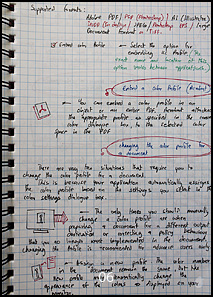 Supported formats:
Adobe PDF / PSD (Photoshop) / AI (Illustrator)
INDD (InDesign) / JPEG / Photoshop EPS / Large
Document format or TIFF.
Embed color Profile ← Select the option for
embedding
option varies between applications)
Embed a color Profile (Acrobat)
← You can embed a color profile in an
object or an entire PDF. Format attaches
the appropriate profile, as specified in the
color space
space in the PDF
changing the color profile for
document
There are very few situations that require you to
change the color profile for a document.
This is because your application automatically assigns
the color profile based on the settings you select in the
color settings dialogue box.
← The only times you should manually
change a color profile are when
preparing a document for a different output
destination or correcting a policy behaviour
that you no longer want implemented in the document.
changing the profile is recommended for advanced users only.
the color number
in the document remain the same but the
new profile may dramatically change the
appearance of the colors as displayed on your
monitor.